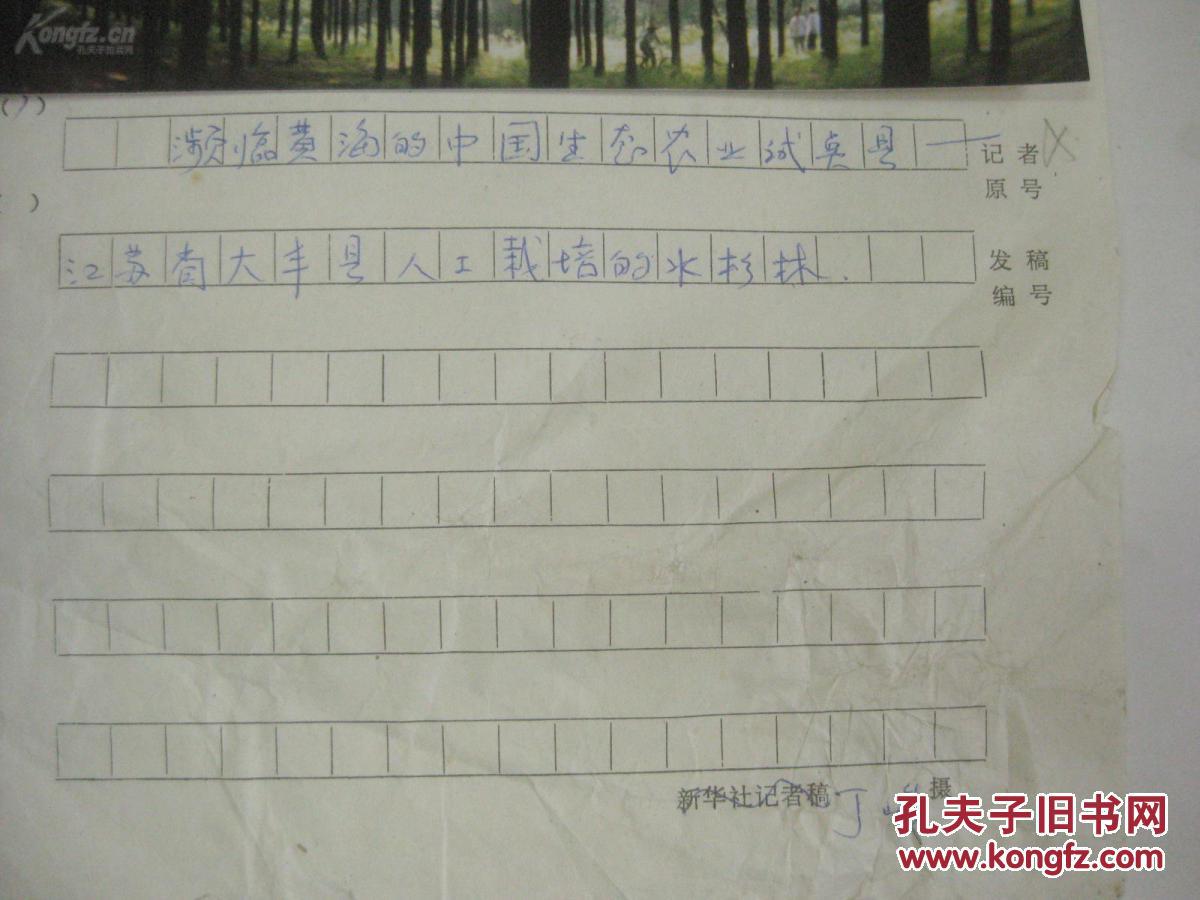 Kongfz.cn
孔夫子旧书网
濒临黄海的中国生态农业试点县——
记者
原号
江苏省大丰县人工栽培的水杉林.
发稿
编号
新华社记者稿 丁 摄
孔夫子旧书网
www.kongfz.com